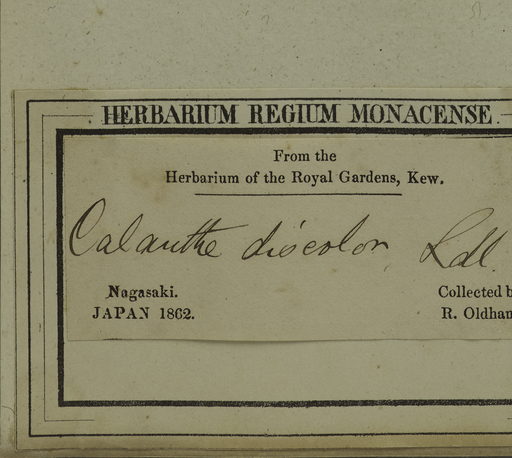 HERBARIUM REGIUM MONACENSE
From the
Herbarium of the Royal Gardens, Kew.
Calanthe discolor, Ldl.
Nagasaki.
JAPAN 1862.
Collected b
R. Oldham